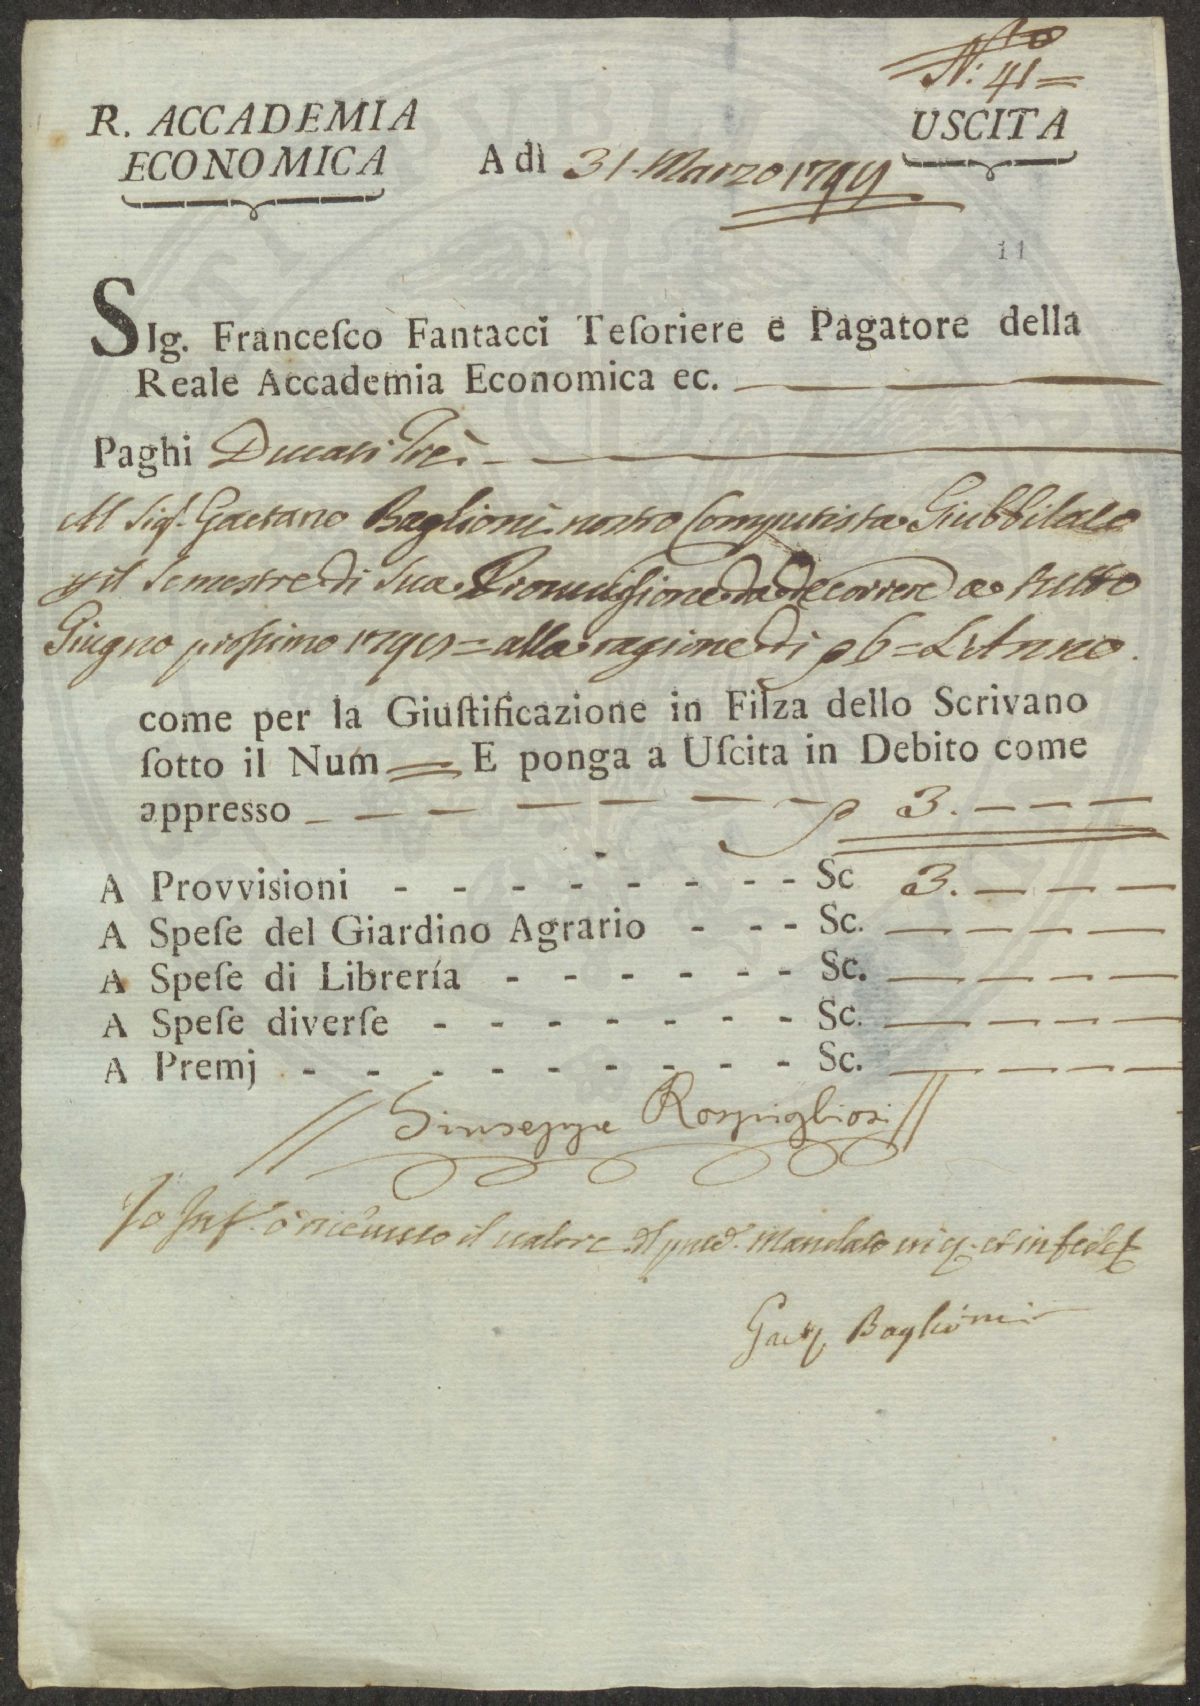 N.o 41=
R. ACCADEMIA
ECONOMICA
USCITA
A dì 31. Marzo 1799
11
SIg. Franceſco Fantacci Teſoriere e Pagatore della
Reale Accademia Economica ec.
Paghi Ducati Tre
Al Sig.r Gaetano Baglioni nostro Computista Giubbilato
il Semestre di Sua Provvisione da decorrere a tutto
Giugno prossimo 1799= alla ragione di 6= L'Anno.
come per la Giuſtificazione in Filza dello Scrivano
ſotto il Num E ponga a Uſcita in Debito come
appresso — — — — — — — 3. — — —
A Provvisioni - - - - - - - - Sc 3. — — —
A Speſe del Giardino Agrario - - - Sc. — — — —
A Speſe di Librería - - - - - - Sc. — — — —
A Speſe diverſe - - - - - - - Sc. — — — —
A Premj - - - - - - - - - Sc. — — — —
// Giuseppe Rospigliosi //
Io Inf.o ò ricevuto il valore d pred.o Mandato in et in fede
Gaet Baglioni